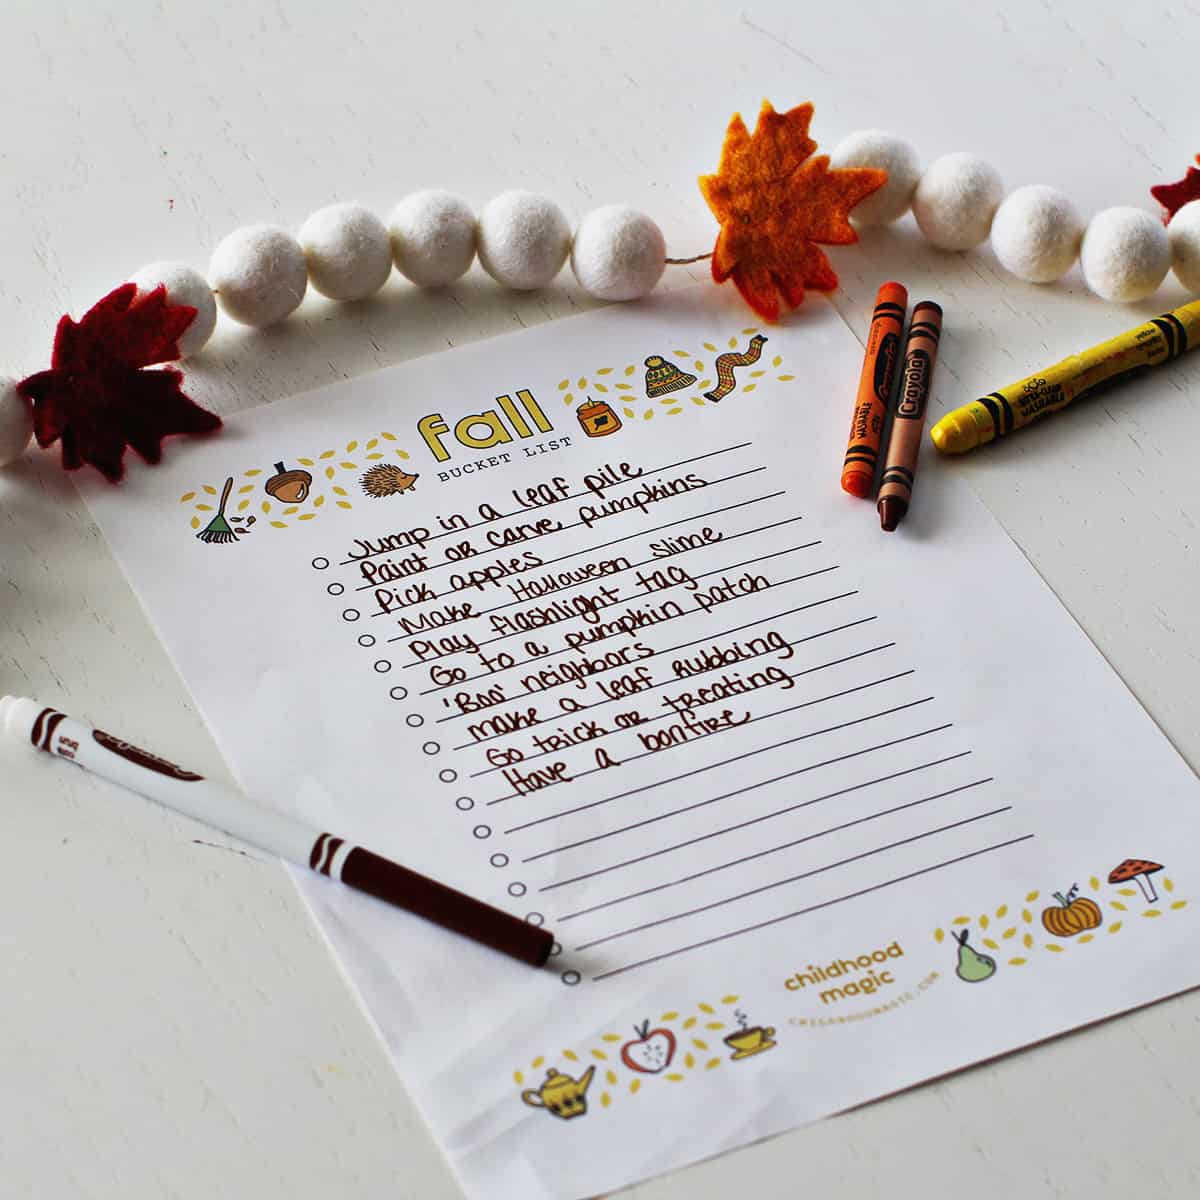 fall
BUCKET LIST
Jump in a leaf pile
Paint or carve pumpkins
Pick apples
Make Halloween slime
Play flashlight tag
Go to a pumpkin patch
'Boo' neighbors
make a leaf rubbing
Go trick or treating
Have a bonfire
childhood
magic
CHILDHOODMAGIC.COM
Crayola
WASHABLE
Crayola
yellow
ULTRA-CLEAN
WASHABLE
Crayola